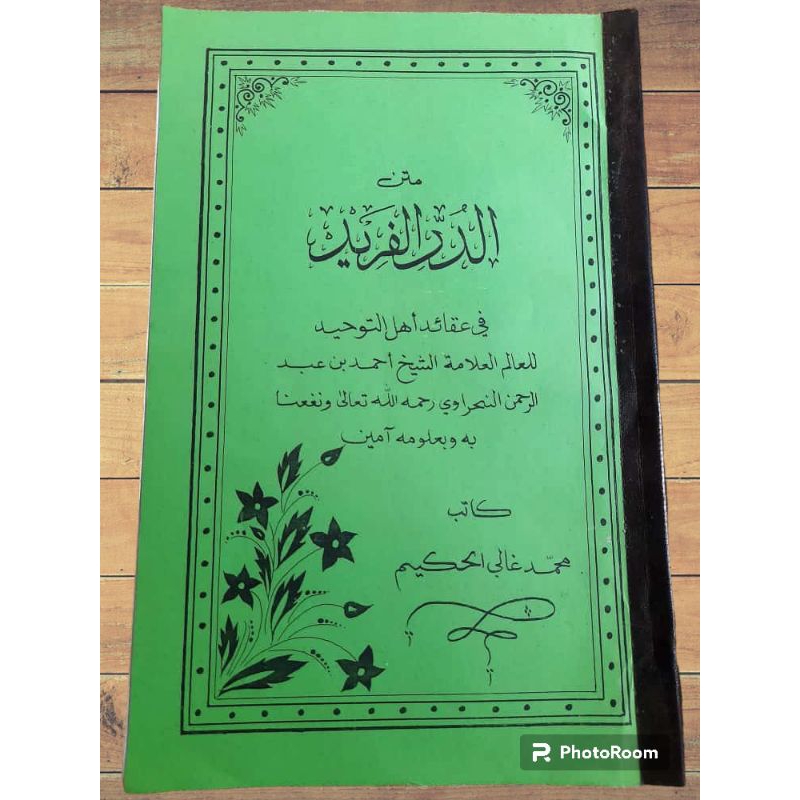 متن
الدُّرِّ الفَرِيْدِ
في عقائد أهل التوحيد
للعالم العلامة الشيخ أحمد بن عبد
الرحمن النحراوي رحمه الله تعالى ونفعنا
به وبعلومه آمين
كاتب
محمّد غالي الحكيم
PhotoRoom